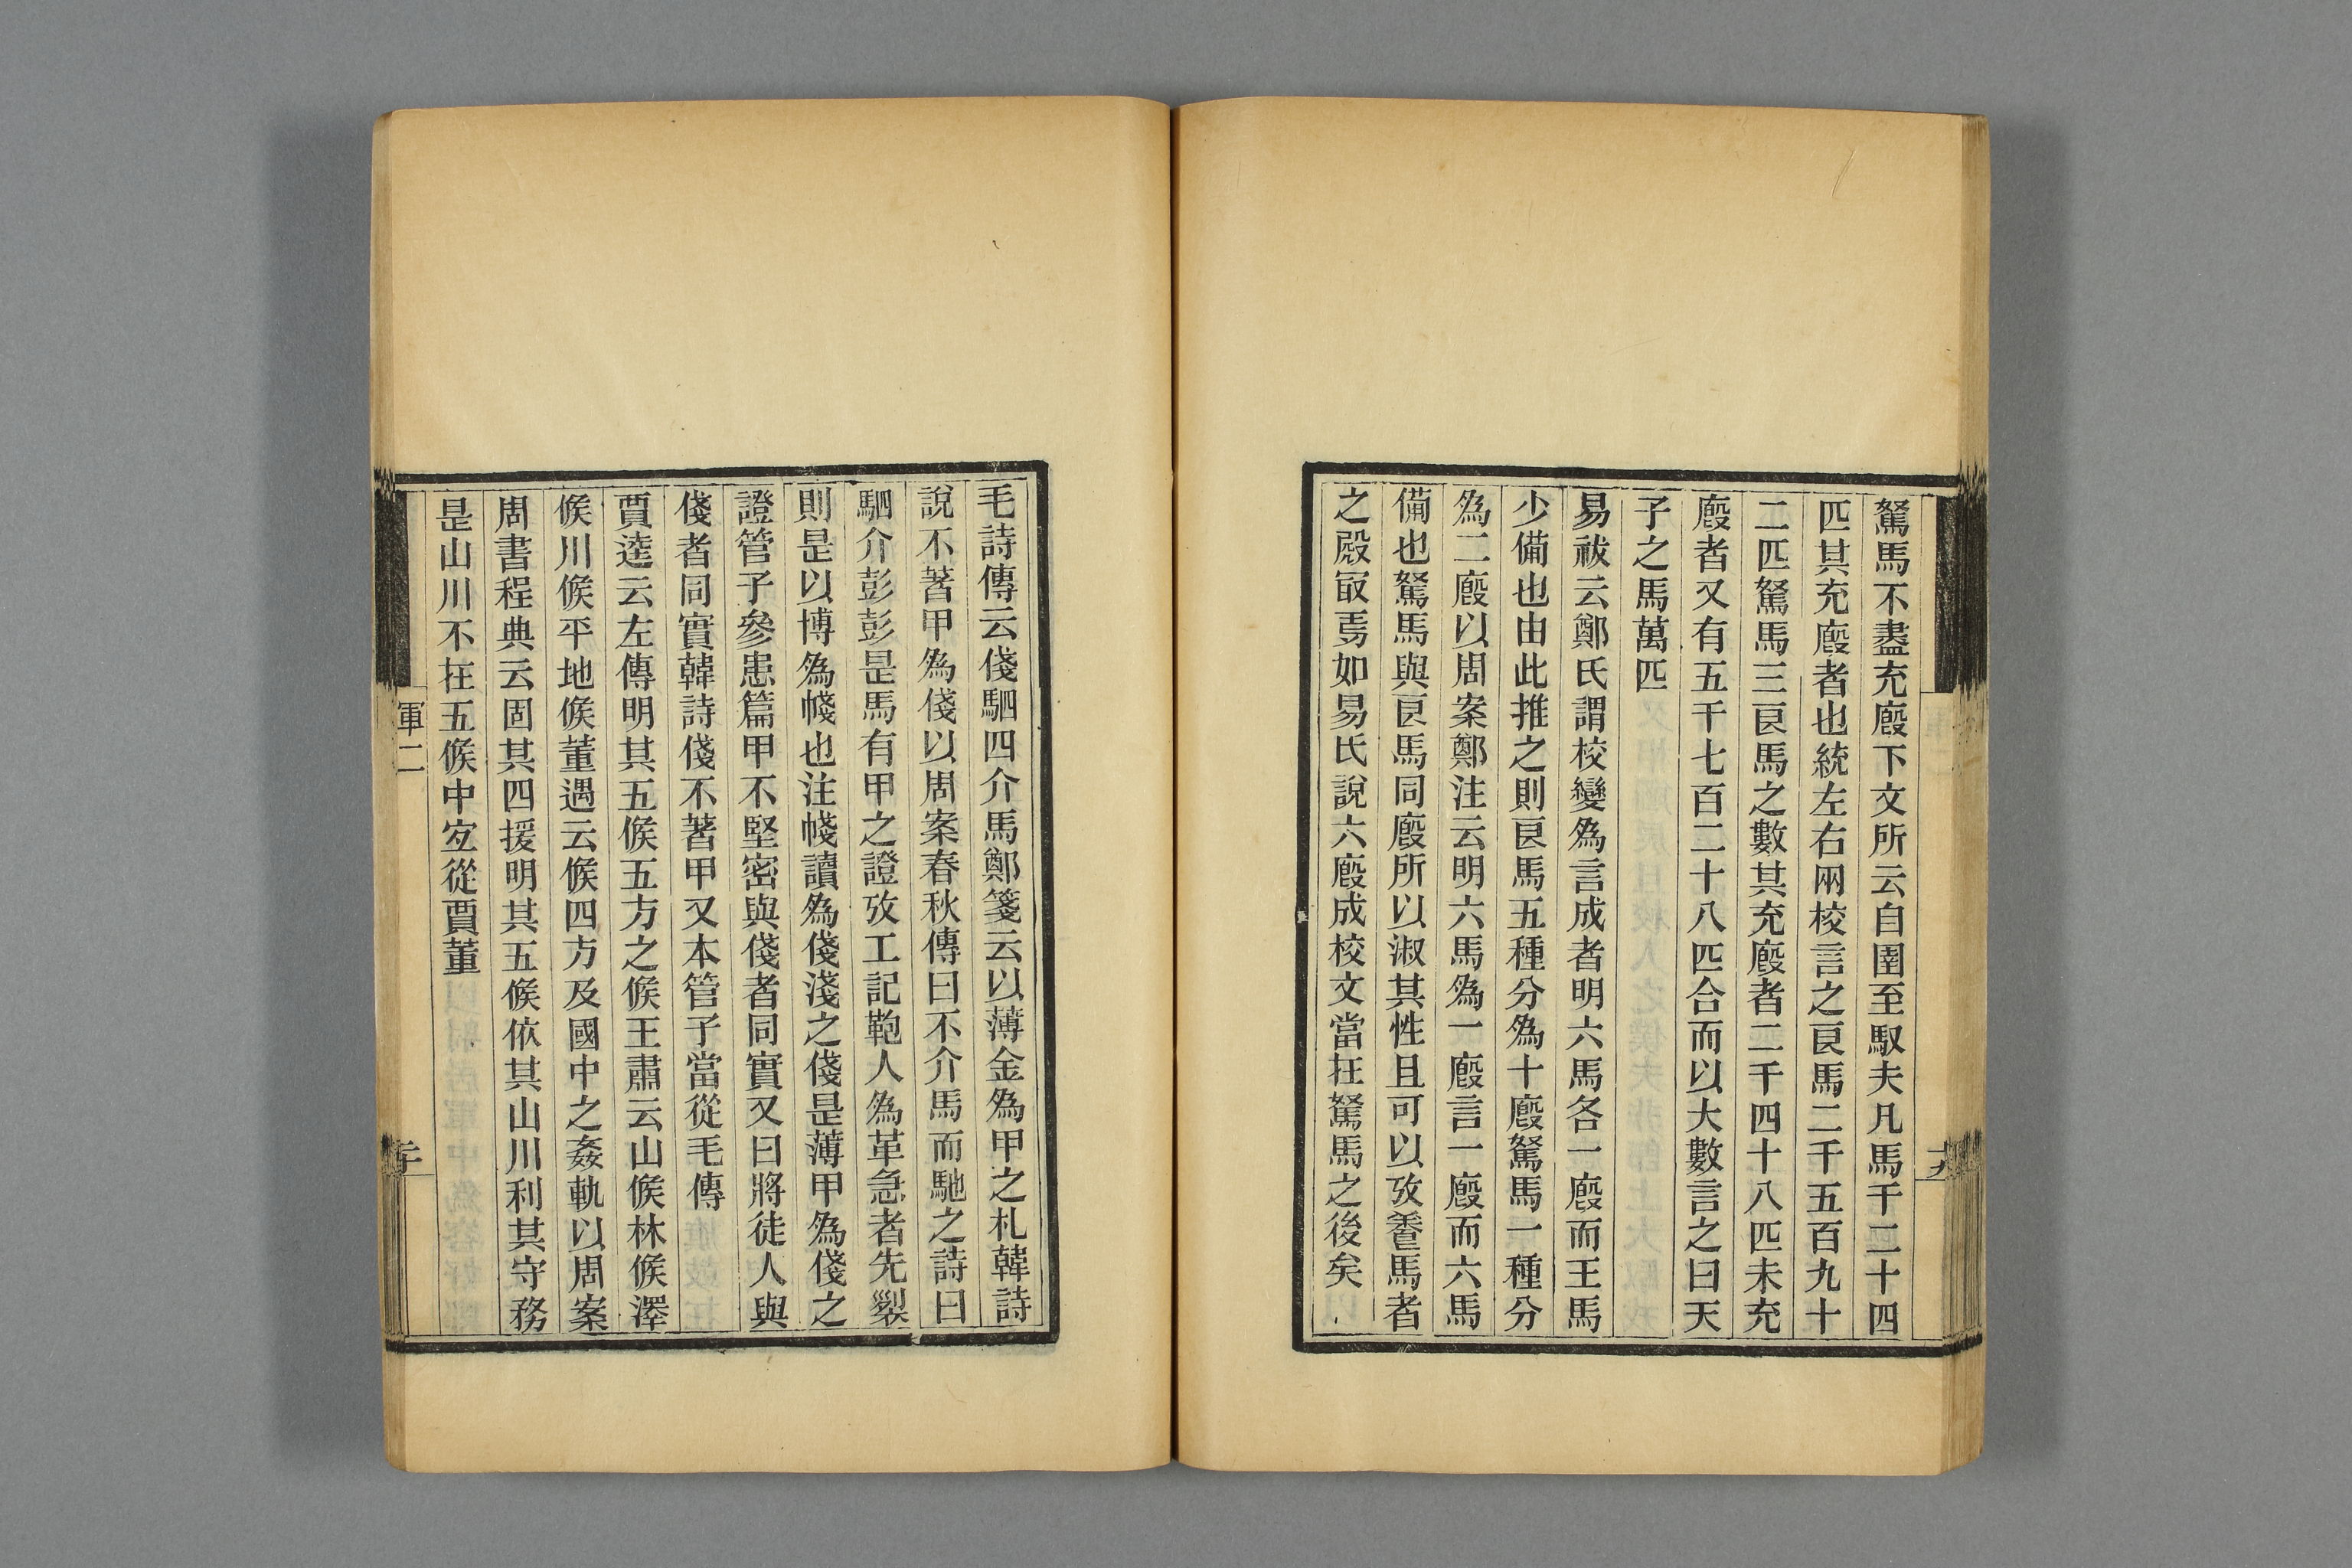 駑馬不盡充廏下文所云自圉至馭夫凡馬千二十四
匹其充廏者也統左右兩校言之良馬二千五百九十
二匹駑馬三良馬之數其充廏者二千四十八匹未充
廏者又有五千七百二十八匹合而以大數言之曰天
子之馬萬匹
易祓云鄭氏謂校變為言成者明六馬各一廏而王馬
少備也由此推之則良馬五種分為十廏駑馬一種分
為二廏以周案鄭注云明六馬為一廏言一廏而六馬
備也駑馬與良馬同廏所以淑其性且可以攷養馬者
之殿最焉如易氏說六廏成校文當在駑馬之後矣
十九
毛詩傳云俴駟四介馬鄭箋云以薄金為甲之札韓詩
說不著甲為俴以周案春秋傳曰不介馬而馳之詩曰
駟介彭彭是馬有甲之證攷工記鞄人為革急者先裂
則是以博為帴也注帴讀為俴淺之俴是薄甲為俴之
證管子參患篇甲不堅密與俴者同實又曰將徒人與
俴者同實韓詩俴不著甲又本管子當從毛傳
賈逵云左傳明其五候五方之候王肅云山候林候澤
候川候平地候董遇云候四方及國中之姦軌以周案
周書程典云固其四援明其五候依其山川利其守務
是山川不在五候中宐從賈董
軍二
二十